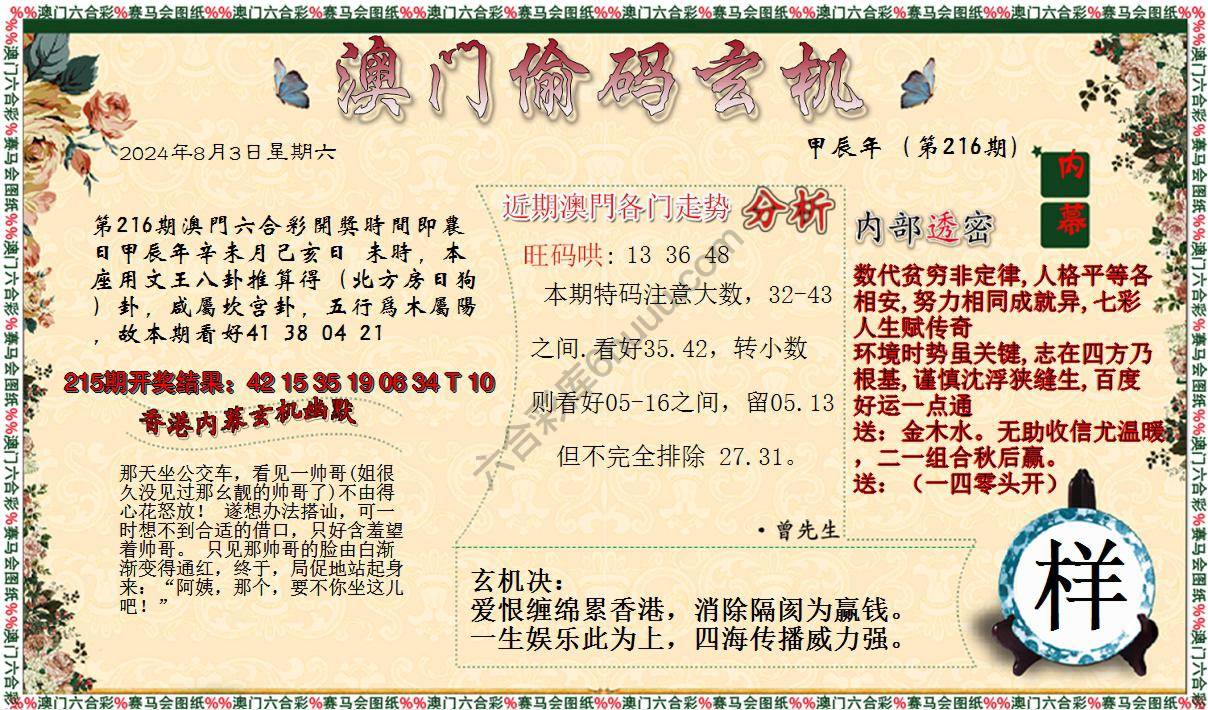 %%澳门六合彩%赛马会图纸%%澳门六合彩%赛马会图纸%%澳门六合彩%赛马会图纸%%澳门六合彩%赛马会图纸%%澳门六合彩%赛马会图纸%%澳门六合彩%赛马会图纸%%
澳门偷码玄机
2024年8月3日星期六
甲辰年（第216期）
内
幕
第216期澳門六合彩開獎時間即農
日甲辰年辛未月己亥日 未時，本
座用文王八卦推算得（北方房日狗
）卦，咸屬坎宫卦，五行爲木屬陽
，故本期看好41 38 04 21
215期开奖结果：42 15 35 19 06 34 T 10
香港内幕玄机幽默
那天坐公交车，看见一帅哥(姐很
久没见过那幺靓的帅哥了)不由得
心花怒放！ 遂想办法搭讪，可一
时想不到合适的借口，只好含羞望
着帅哥。 只见那帅哥的脸由白渐
渐变得通红，终于，局促地站起身
来：“阿姨，那个，要不你坐这儿
吧！”
近期澳門各门走勢 分析
旺码哄: 13 36 48
本期特码注意大数，32-43
之间.看好35.42，转小数
则看好05-16之间，留05.13
但不完全排除 27.31。
·曾先生
内部透密
数代贫穷非定律,人格平等各
相安,努力相同成就异,七彩
人生赋传奇
环境时势虽关键,志在四方乃
根基,谨慎沈浮狭缝生,百度
好运一点通
送：金木水。无助收信尤温暖
，二一组合秋后赢。
送：（一四零头开）
玄机决：
爱恨缠绵累香港，消除隔阂为赢钱。
一生娱乐此为上，四海传播威力强。
样
%%澳门六合彩%赛马会图纸%%澳门六合彩%赛马会图纸%%澳门六合彩%赛马会图纸%%澳门六合彩%赛马会图纸%%澳门六合彩%赛马会图纸%%澳门六合彩%赛马会图纸%%